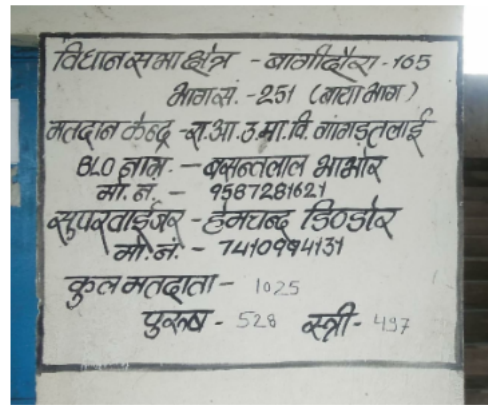 विधानसभा क्षेत्र - बागीदौरा - 165
भाग सं. - 251 (बाया भाग)
मतदान केन्द्र - रा.आ.उ.मा.वि. गांगड़तलाई
BLO नाम. - बसन्तलाल भाभोर
मो. न. - 9587281621
सुपरवाईजर - हेमचन्द डिण्डोर
मो. नं. - 7410994131
कुल मतदाता - 1025
पुरूष - 528 स्त्री - 497